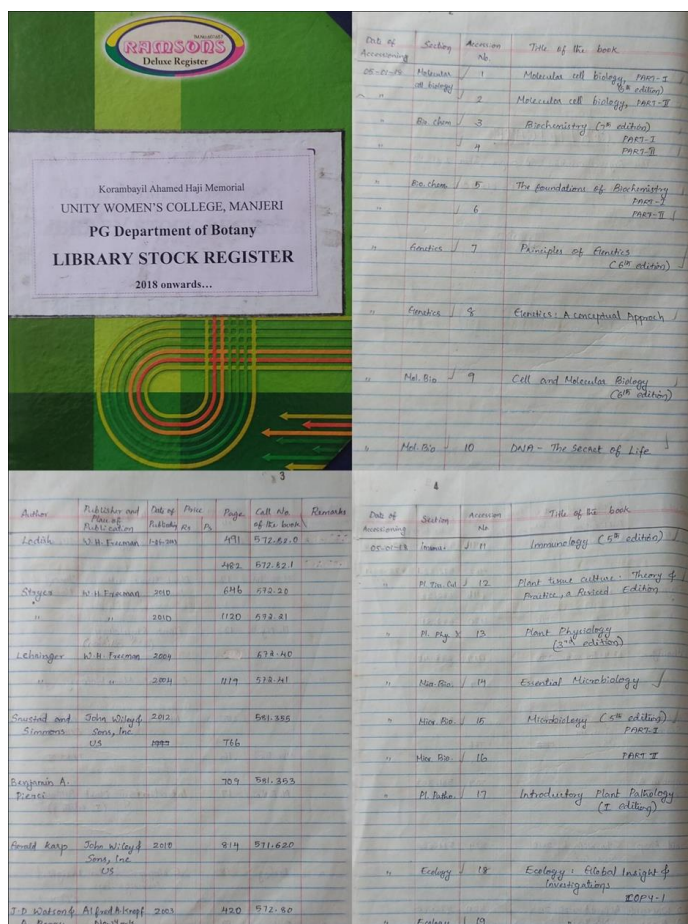 RAMSONS
Deluxe Register
Korambayil Ahamed Haji Memorial
UNITY WOMEN'S COLLEGE, MANJERI
PG Department of Botany
LIBRARY STOCK REGISTER
2018 onwards...
Date of Accessioning Section Accession No. Title of the book
Molecular cell biology 1 Molecular cell biology, PART-I
edition)
" 2 Molecular cell biology, PART-II
" Bio. chem 3 Biochemistry (7th edition)
PART-I
" 4 PART-II
" Bio. chem 5 The foundations of Biochemistry
PART-I
" 6 PART-II
" Genetics 7 Principles of Genetics
(6th edition)
" Genetics 8 Genetics: A conceptual Approch
" Mol. Bio 9 Cell and Molecular Biology
(6th edition)
" Mol. Bio 10 DNA - The Secret of Life
3
Author Publisher and Place of Publication Date of Price Rs Ps Page Call No. of the book Remarks
Lodish W.H. Freeman 491 572.82.0
482 572.82.1
Stryer W.H. Freeman 2010 646 572.20
" " 2010 1120 572.21
Lehninger W.H. Freeman 2004 40
" " 2004 1119 572.41
and John Wiley & 2012 581.355
Simmons Sons, Inc
US 766
Benjamin A. 709 581.353
John Wiley & 2010 814 571.620
Sons, Inc
US
J.D Watson & Alfred A. Knopf 2003 420 572.80
4
Date of Accessioning Section Accession No Title of the book
11 Immunology (5th edition)
" Pl. Tis. Cul 12 Plant tissue culture. Theory &
Practice, a Revised Edition
" Pl. Phy 13 Plant Physiology
(3rd edition)
" Mic. Bio. 14 Essential Microbiology
" Micr. Bio. 15 Microbiology (5th edition)
PART-I
" Micr Bio. 16 PART II
" Pl. Patho. 17 Introductory Plant Pathology
(I edition)
" Ecology 18 Ecology: Global Insight &
Investigations
COPY-1
" Ecology 19